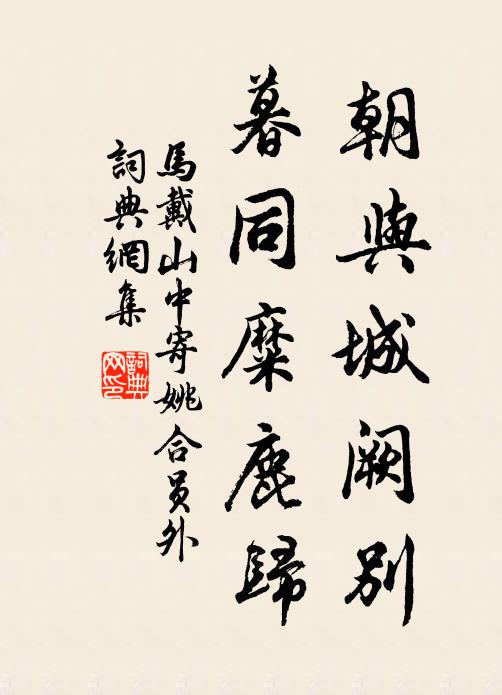 朝與城闕別
暮同麋鹿歸
馬戴山中寄姚合員外
詞典網集
詞典網印